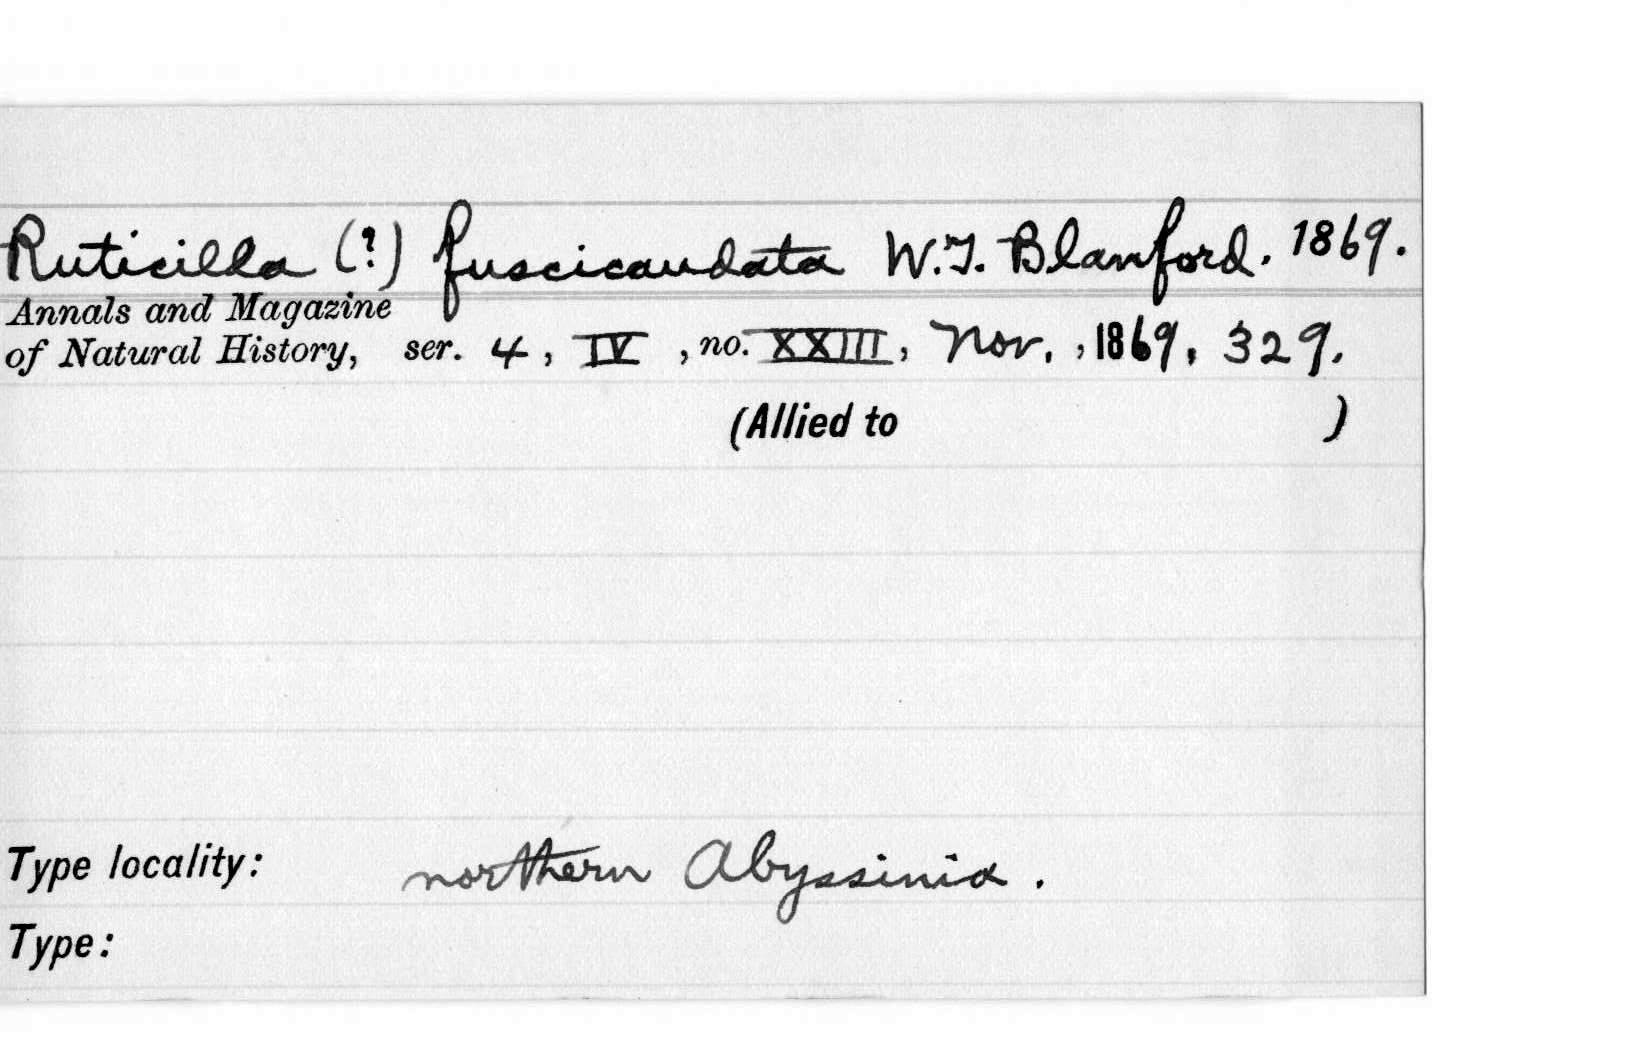 Ruticilla (?) fuscicaudata W.T. Blanford. 1869.
Annals and Magazine
of Natural History, ser. 4, IV, no. XXIII, Nov., 1869, 329.
(Allied to )
Type locality: northern Abyssinia.
Type: